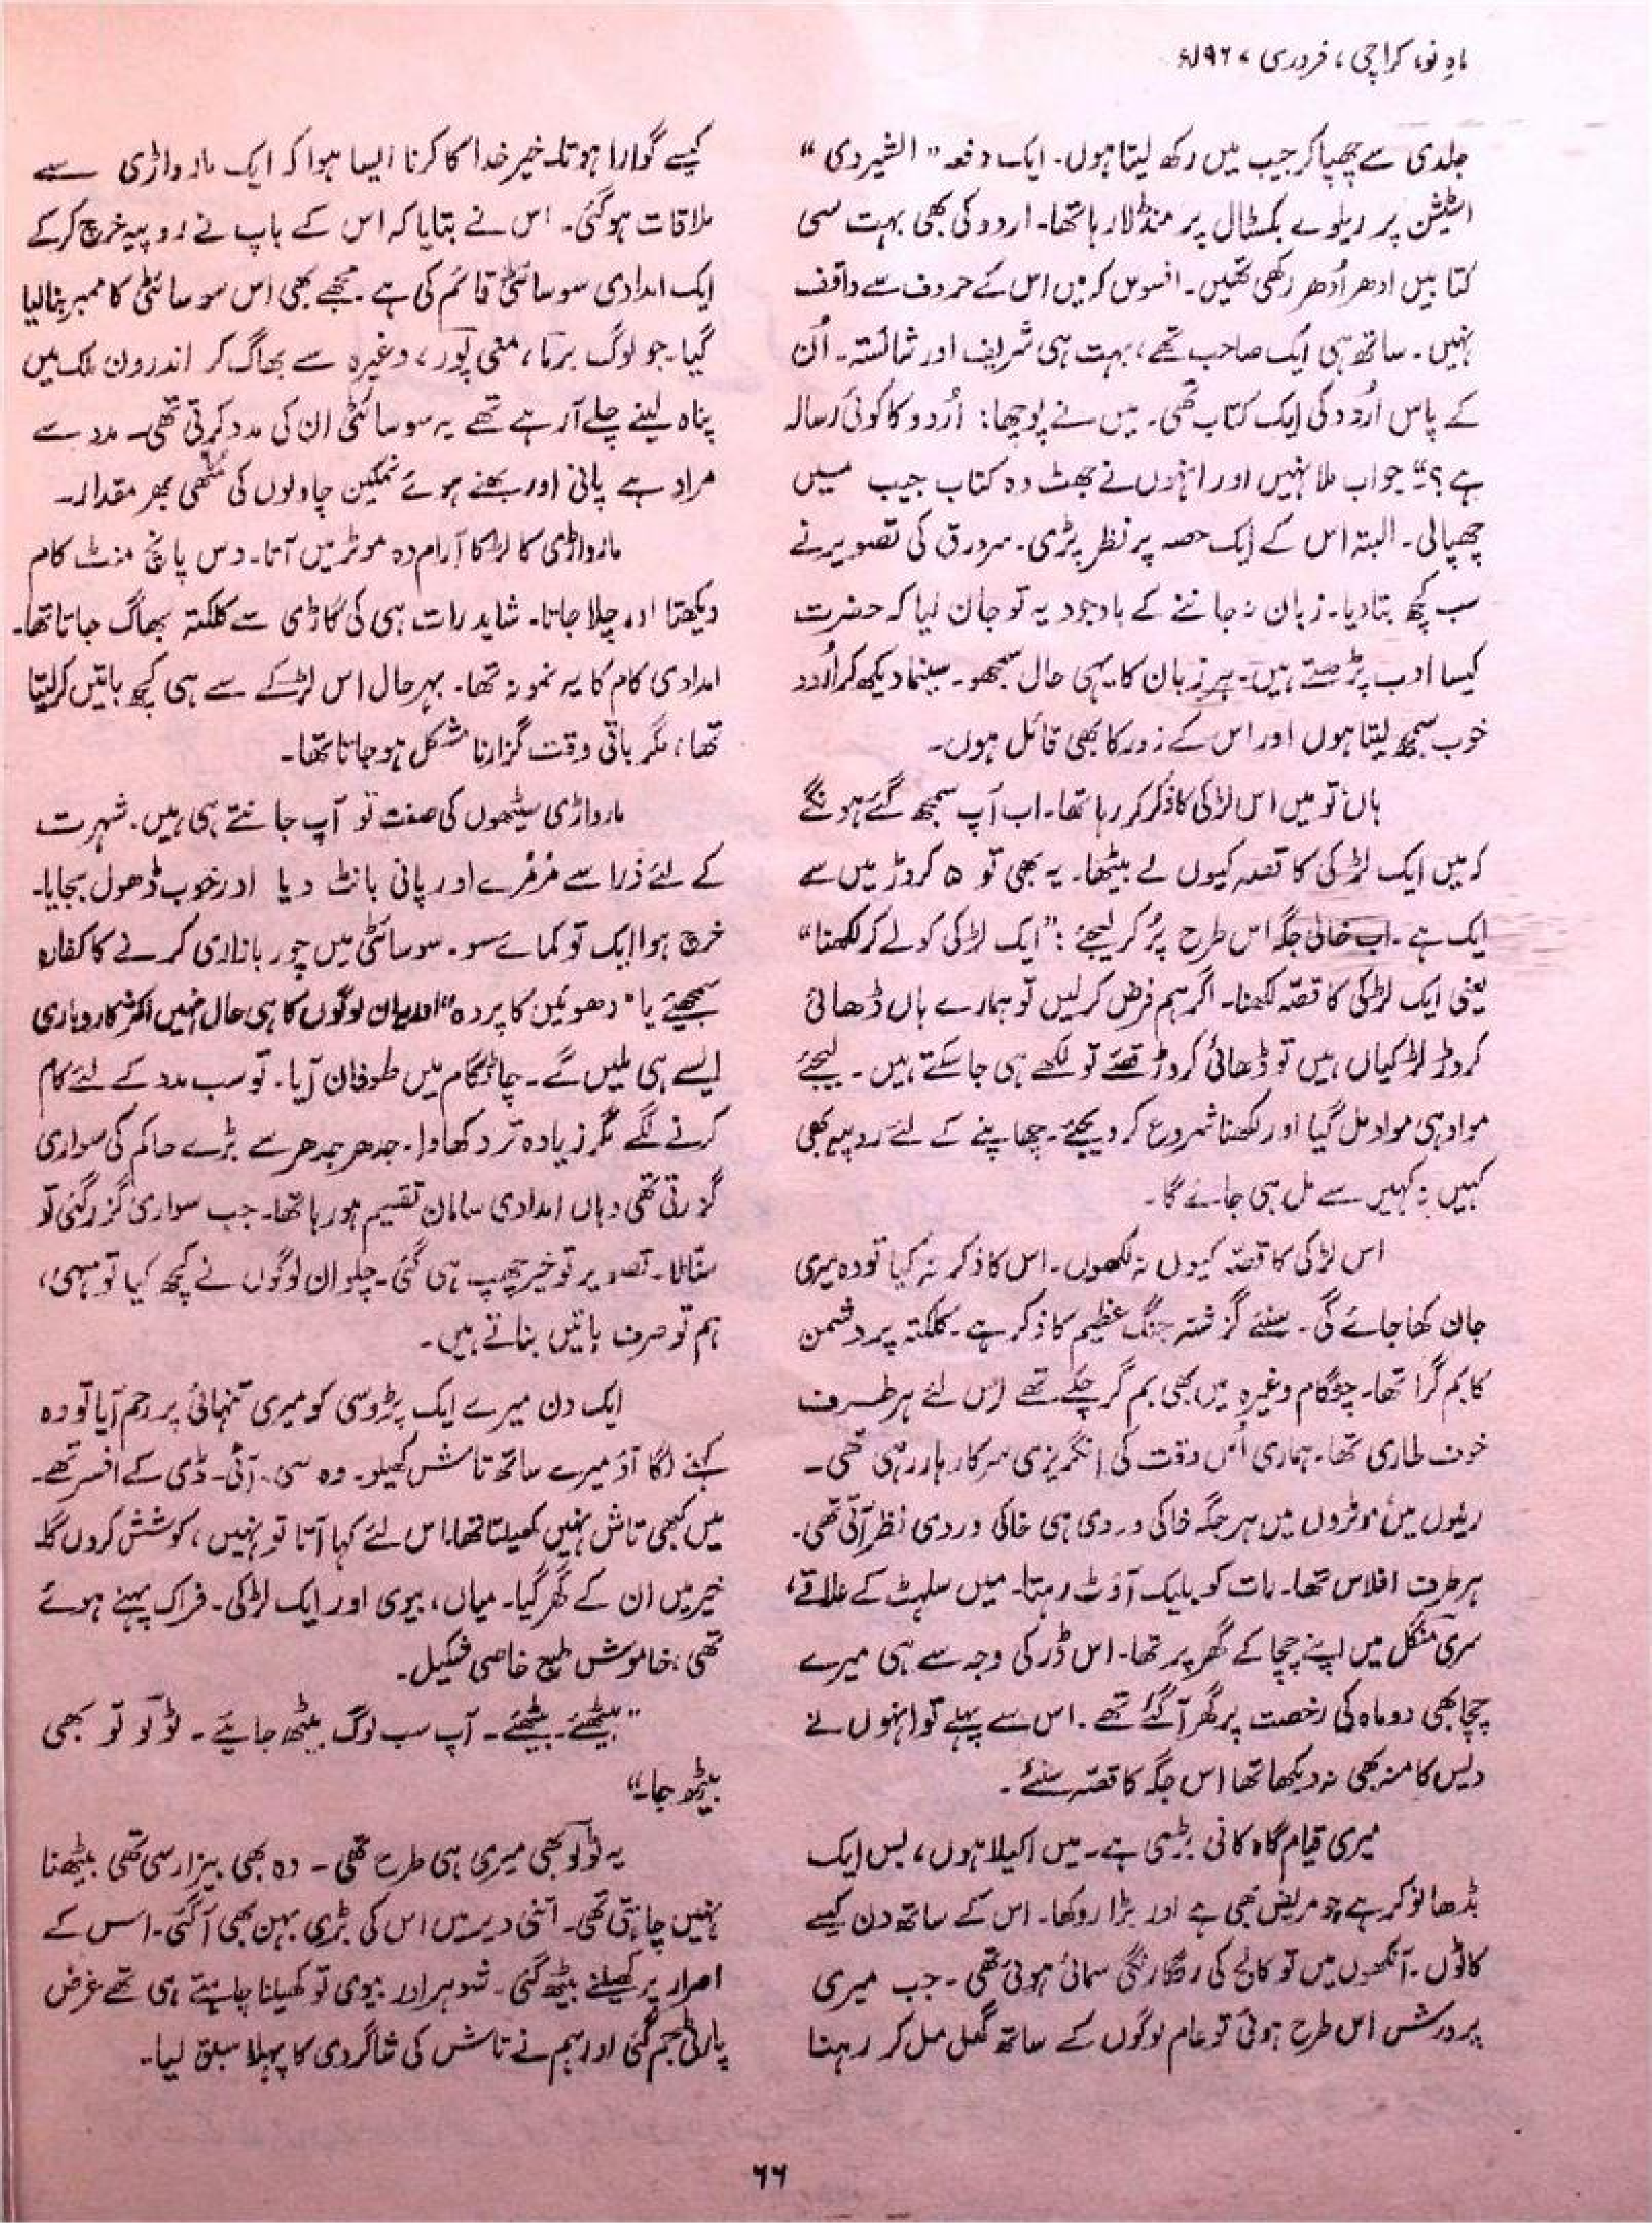 ماہِ نو، کراچی، فروری ۱۹۶۷ء
جلدی سے چھپا کر جیب میں رکھ لیتا ہوں۔ ایک دفعہ "الشیردی"
اسٹیشن پر ریلوے بکسٹال پر منڈلا رہا تھا۔ اردو کی بھی بہت سی
کتابیں ادھر اُدھر رکھی تھیں۔ افسوس کہ میں اس کے حروف سے واقف
نہیں۔ ساتھ ہی ایک صاحب تھے، بہت ہی شریف اور شائستہ۔ اُن
کے پاس اُردو کی ایک کتاب تھی۔ میں نے پوچھا: اُردو کا کوئی رسالہ
ہے؟" جواب ملا نہیں اور انہوں نے جھٹ وہ کتاب جیب میں
چھپالی۔ البتہ اس کے ایک حصہ پر نظر پڑی۔ سرورق کی تصویر نے
سب کچھ بتا دیا۔ زبان نہ جاننے کے باوجود یہ تو جان لیا کہ حضرت
کیسا ادب پڑھتے ہیں۔ ہر زبان کا یہی حال سمجھو۔ سینما دیکھ کر اُردو
خوب سمجھ لیتا ہوں اور اس کے زور کا بھی قائل ہوں۔
ہاں تو میں اس لڑکی کا ذکر کر رہا تھا۔ اب آپ سمجھ گئے ہونگے
کہ میں ایک لڑکی کا قصہ کیوں لے بیٹھا۔ یہ بھی تو ۵ کروڑ میں سے
ایک ہے۔ اب خالی جگہ اس طرح پُر کر لیجئے: "ایک لڑکی کو لے کر لکھنا"
یعنی ایک لڑکی کا قصّہ لکھنا۔ اگر ہم فرض کر لیں تو ہمارے ہاں ڈھائی
کروڑ لڑکیاں ہیں تو ڈھائی کروڑ قصّے تو لکھے ہی جا سکتے ہیں۔ لیجئے
مواد ہی مواد مل گیا اور لکھنا شروع کر دیجئے۔ چھاپنے کے لئے روپیہ بھی
کہیں نہ کہیں سے مل ہی جائے گا۔
اس لڑکی کا قصّہ کیوں نہ لکھوں۔ اس کا ذکر نہ کیا تو وہ میری
جان کھا جائے گی۔ سنئے گزشتہ جنگ عظیم کا ذکر ہے۔ کلکتہ پر دشمن
کا بم گرا تھا۔ چٹگام وغیرہ میں بھی بم گر چکے تھے اس لئے ہر طرف
خوف طاری تھا۔ ہماری اُس وقت کی انگریزی سرکار ہار رہی تھی۔
ریلوں میں موٹروں میں ہر جگہ خاکی وردی ہی خاکی وردی نظر آتی تھی۔
ہر طرف افلاس تھا۔ رات کو بلیک آؤٹ رہتا۔ میں سلہٹ کے علاقے،
سری منگل میں اپنے چچا کے گھر پر تھا۔ اس ڈر کی وجہ سے ہی میرے
چچا بھی دو ماہ کی رخصت پر گھر آ گئے تھے۔ اس سے پہلے تو انہوں نے
دیس کا منہ بھی نہ دیکھا تھا اس جگہ کا قصّہ سنئے۔
میری قیام گاہ کافی بڑی سی ہے۔ میں اکیلا ہوں، بس ایک
بڈھا نوکر ہے جو مریض بھی ہے اور بڑا روکھا۔ اس کے ساتھ دن کیسے
کاٹوں۔ آنکھوں میں تو کالج کی رنگا رنگی سمائی ہوئی تھی۔ جب میری
پرورش اس طرح ہوئی تو عام لوگوں کے ساتھ گھل مل کر رہنا
کیسے گوارا ہوتا۔ خیر خدا کا کرنا ایسا ہوا کہ ایک مارواڑی سے
ملاقات ہو گئی۔ اس نے بتایا کہ اس کے باپ نے روپیہ خرچ کر کے
ایک امدادی سوسائٹی قائم کی ہے۔ مجھے بھی اس سوسائٹی کا ممبر بنا لیا
گیا۔ جو لوگ برما، منی پور، وغیرہ سے بھاگ کر اندرون ملک میں
پناہ لینے چلے آ رہے تھے یہ سوسائٹی ان کی مدد کرتی تھی۔ مدد سے
مراد ہے پانی اور بھنے ہوئے نمکین چاولوں کی مٹھی بھر مقدار۔
مارواڑی کا لڑکا آرام دہ موٹر میں آتا۔ دس پانچ منٹ کام
دیکھتا اور چلا جاتا۔ شاید رات ہی کی گاڑی سے کلکتہ بھاگ جاتا تھا۔
امدادی کام کا یہ نمونہ تھا۔ بہرحال اس لڑکے سے ہی کچھ باتیں کر لیتا
تھا، مگر باقی وقت گزارنا مشکل ہو جاتا تھا۔
مارواڑی سیٹھوں کی صفت تو آپ جانتے ہی ہیں۔ شہرت
کے لئے ذرا سے مُرمُرے اور پانی بانٹ دیا اور خوب ڈھول بجایا۔
خرچ ہوا ایک تو کمائے سو۔ سوسائٹی میں چور بازاری کرنے کا کفارہ
سمجھئے یا "دھوئیں کا پردہ" اور ان لوگوں کا ہی حال نہیں اکثر کاروباری
ایسے ہی ملیں گے۔ چاٹگام میں طوفان آیا۔ تو سب مدد کے لئے کام
کرنے لگے مگر زیادہ تر دکھاوا۔ جدھر جدھر سے بڑے حاکم کی سواری
گزرتی تھی وہاں امدادی سامان تقسیم ہو رہا تھا۔ جب سواری گزر گئی تو
سناٹا۔ تصویر تو خیر چھپ ہی گئی۔ چلو ان لوگوں نے کچھ کیا تو سہی،
ہم تو صرف باتیں بناتے ہیں۔
ایک دن میرے ایک پڑوسی کو میری تنہائی پر رحم آیا تو وہ
کہنے لگا آؤ میرے ساتھ تاش کھیلو۔ وہ سی۔ آئی۔ ڈی کے افسر تھے۔
میں کبھی تاش نہیں کھیلتا تھا۔ اس لئے کہا آتا تو نہیں، کوشش کروں گا۔
خیر میں ان کے گھر گیا۔ میاں، بیوی اور ایک لڑکی۔ فراک پہنے ہوئے
تھی، خاموش طبع خاصی شکیل۔
"بیٹھئے۔ بیٹھئے۔ آپ سب لوگ بیٹھ جائیے۔ لوٗلوٗ تو بھی
بیٹھ جا۔"
یہ لوٗلوٗ بھی میری ہی طرح تھی۔ وہ بھی بیزار سی تھی بیٹھنا
نہیں چاہتی تھی۔ اتنی دیر میں اس کی بڑی بہن بھی آ گئی۔ اس کے
اصرار پر کھیلنے بیٹھ گئی۔ شوہر اور بیوی تو کھیلنا چاہتے ہی تھے غرض
پارٹی جم گئی اور ہم نے تاش کی شاگردی کا پہلا سبق لیا۔
۶۶